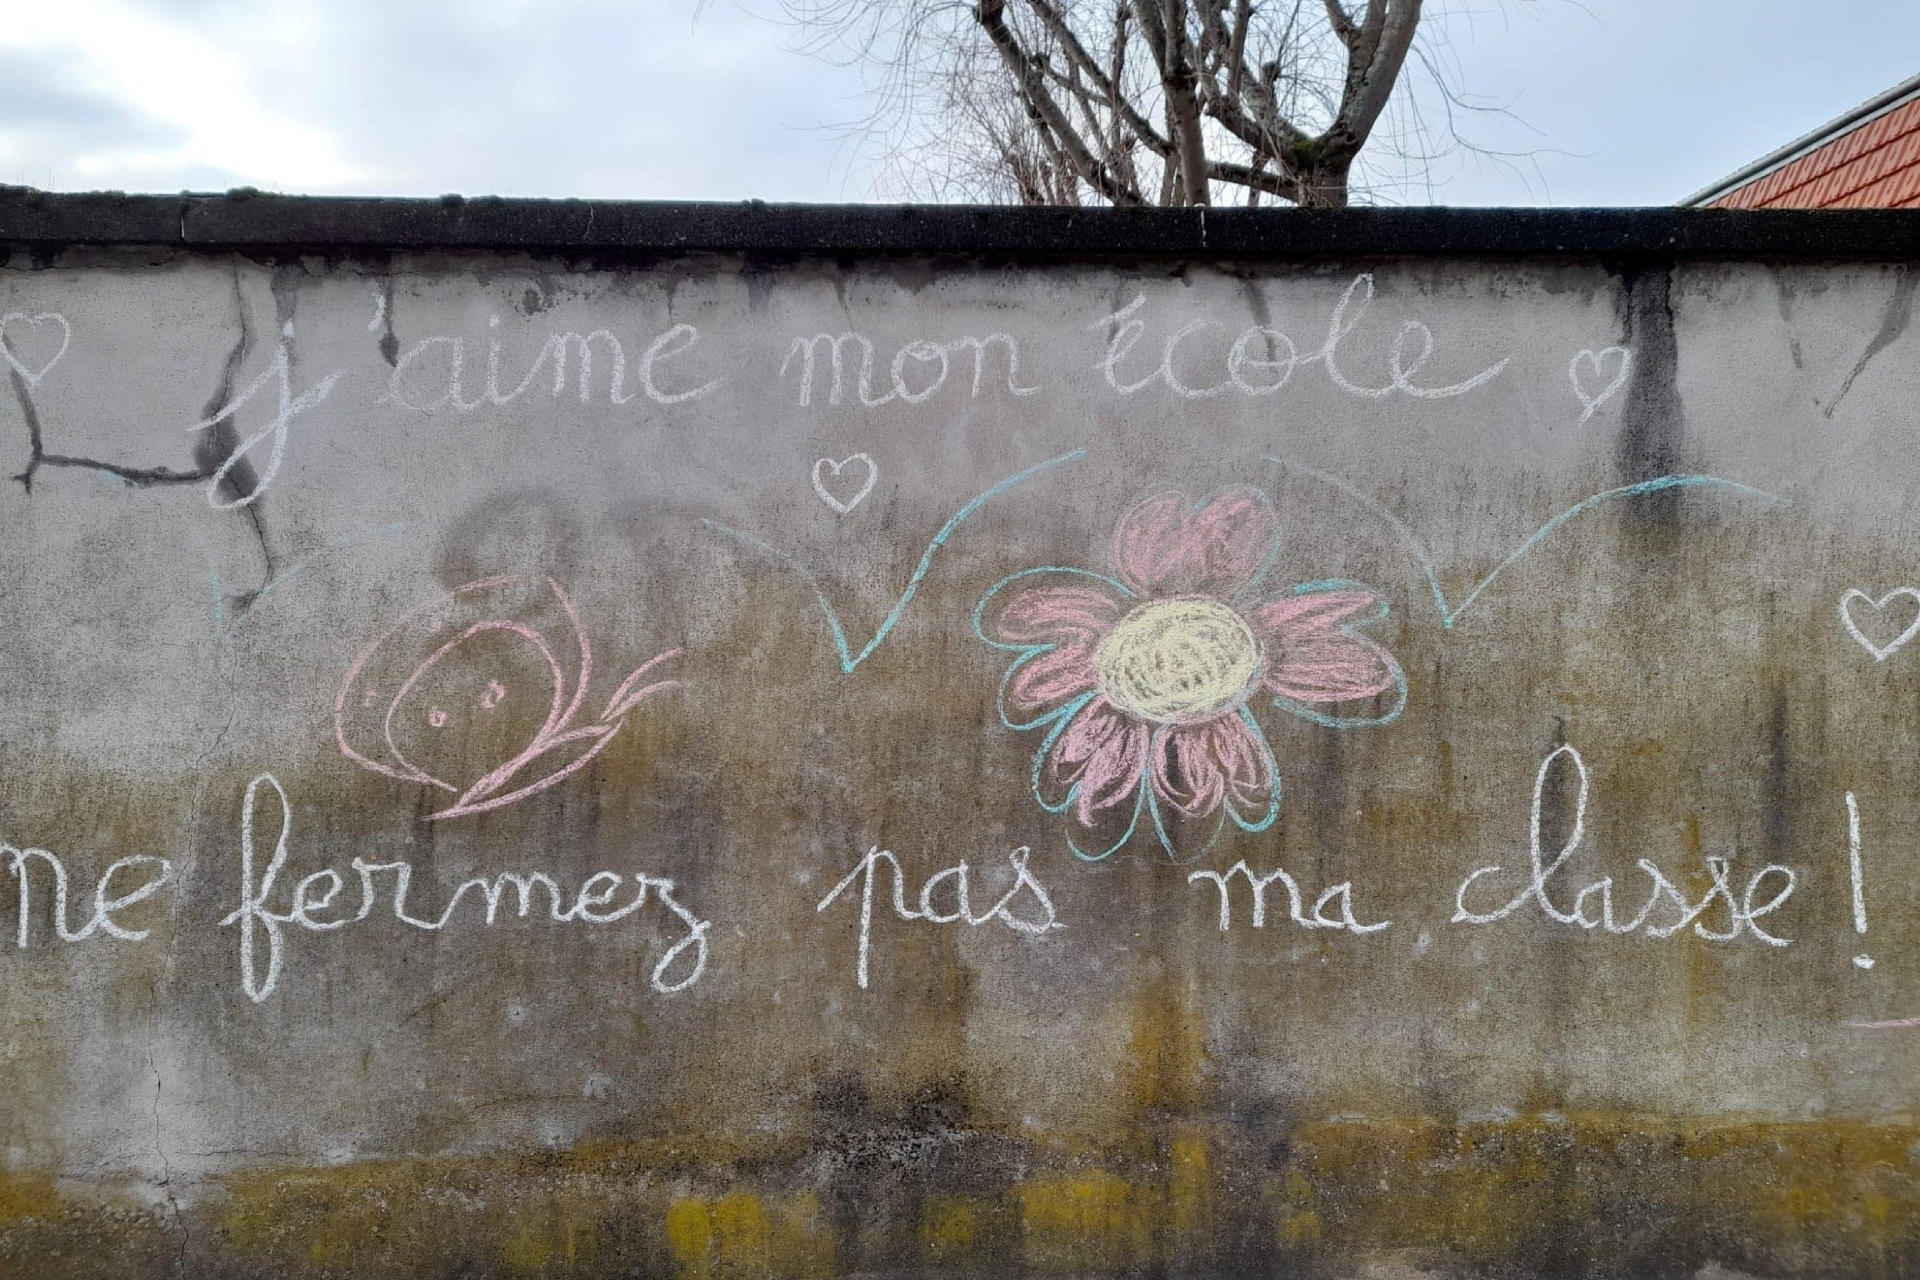 j'aime mon école
ne fermez pas ma classe !